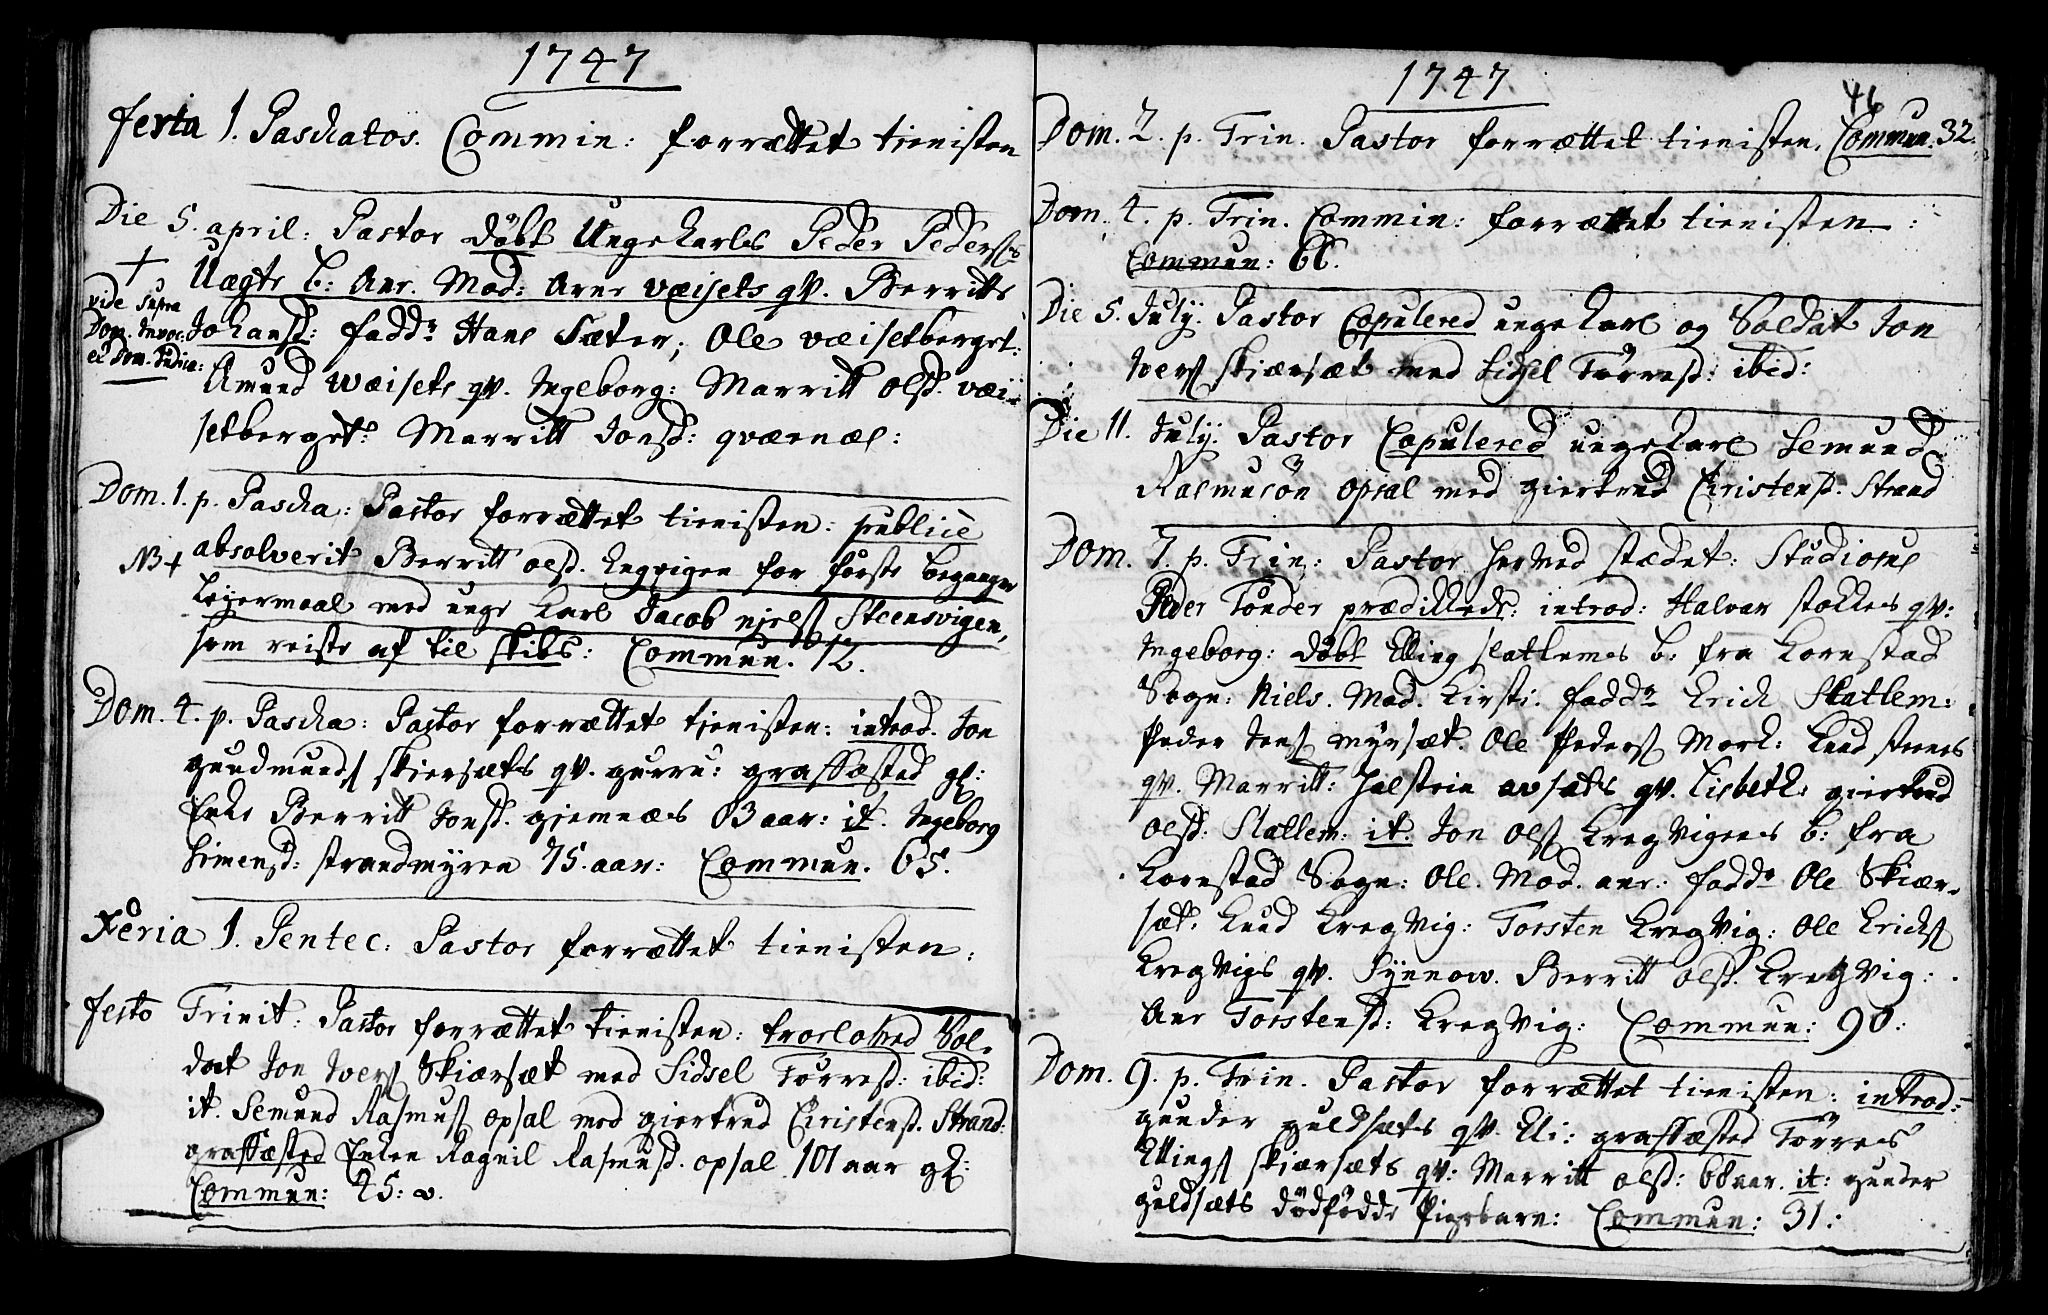 1747
festa 1. Paschatos. Commin: forrættet tienisten
Die 5. april: Pastor döbt Unge Karls Peder Pederss
+ Uægte b: Anr. Mod: Arne væisets qv. Berritte
vide supra
Dom. Invoc: Johansd: fadd Hans Sæter, Ole væisetberget:
et Dom. Judica:
Amund wæisets qv. Ingeborg: Marritt olsd. væi-
setberget: Marritt Jonsd: qværnæs:
Dom. 1. p. Pascha: Pastor forrættet tienisten: publicè
NB + absolverit Berritt olsd. Engvigen for förste begangne
Leyermaal med unge Karl Jacob njels Steensvigen,
som reiste af til skibs: Commun. 12.
Dom. 4. p. Pascha: Pastor forrættet tjenisten: introd. Jon
gundmunds skiersæts qv. gurru: grafsæsted gl:
Enke Berritt Jonsd. gjemnæs 83 aar: it. Ingeborg
Simensd: strandmyren 75. aar: Commun. 65.
Feria 1. Pentec: Pastor forrættet tienisten:
festo Trinit: Pastor forrættet tienisten: trolofved Sol-
dat Jon Ivers Skiærsæt med Sidsel Törresd: ibid:
it. Semund Rasmuss opsal med giertrud Christensd. Strand:
grafsæsted Enken Ragnil Rasmusd. opsal 101 aar gl:
Commun: 45:
1747
46
Dom. 2. p. Trin. Pastor forrættet tienisten. Commun. 32.
Dom. 4. p. Trin. Commin: forrættet tienisten:
Commun: 66.
Die 5. July. Pastor Copulered unge karl og Soldat Jon
Ivers skiærsæt med Sidsel Törresd: ibid:
Die 11. July. Pastor Copulered unge karl Semund
Rasmusön opsal med giertrud Christensd. Strand
Dom. 7. p. Trin: Pastor her ved stædet: Studiosus
Peder Tönder prædikkede: introd: Halvar stokkes qv:
Ingeborg: döbt Elling slatlemes b: fra Kornstad
Sogn: Niels. Mod. Kirsti. fadd Erich Skatlem:
Peder Jens myrsæt. Ole Peders Mork: Knud steenes
qv. Marritt: Halstein avsæts qv. Lisbeth: giertrud
olsd: Slatlem: it. Jon ols Kregvigens b: fra
Kornstad Sogn: Ole. Mod. anr: fadd Ole Skiær-
sæt. Knud Kregvig: Torsten Kregvig: Ole Erichs
Kregvigs qv. Synnow. Berritt olsd. Kregvig:
Anr Torstensd: Kregvig: Commun: 90:
Dom. 9. p. Trin. Pastor forrættet tienisten: introd:
gunder guldsæts qv. Eli: grafsæsted Törres
Ellings skiærsæts qv: Marritt olsd: 68 aar. it: gunder
guldsæts dödfödde Pigebarn: Commun: 31: